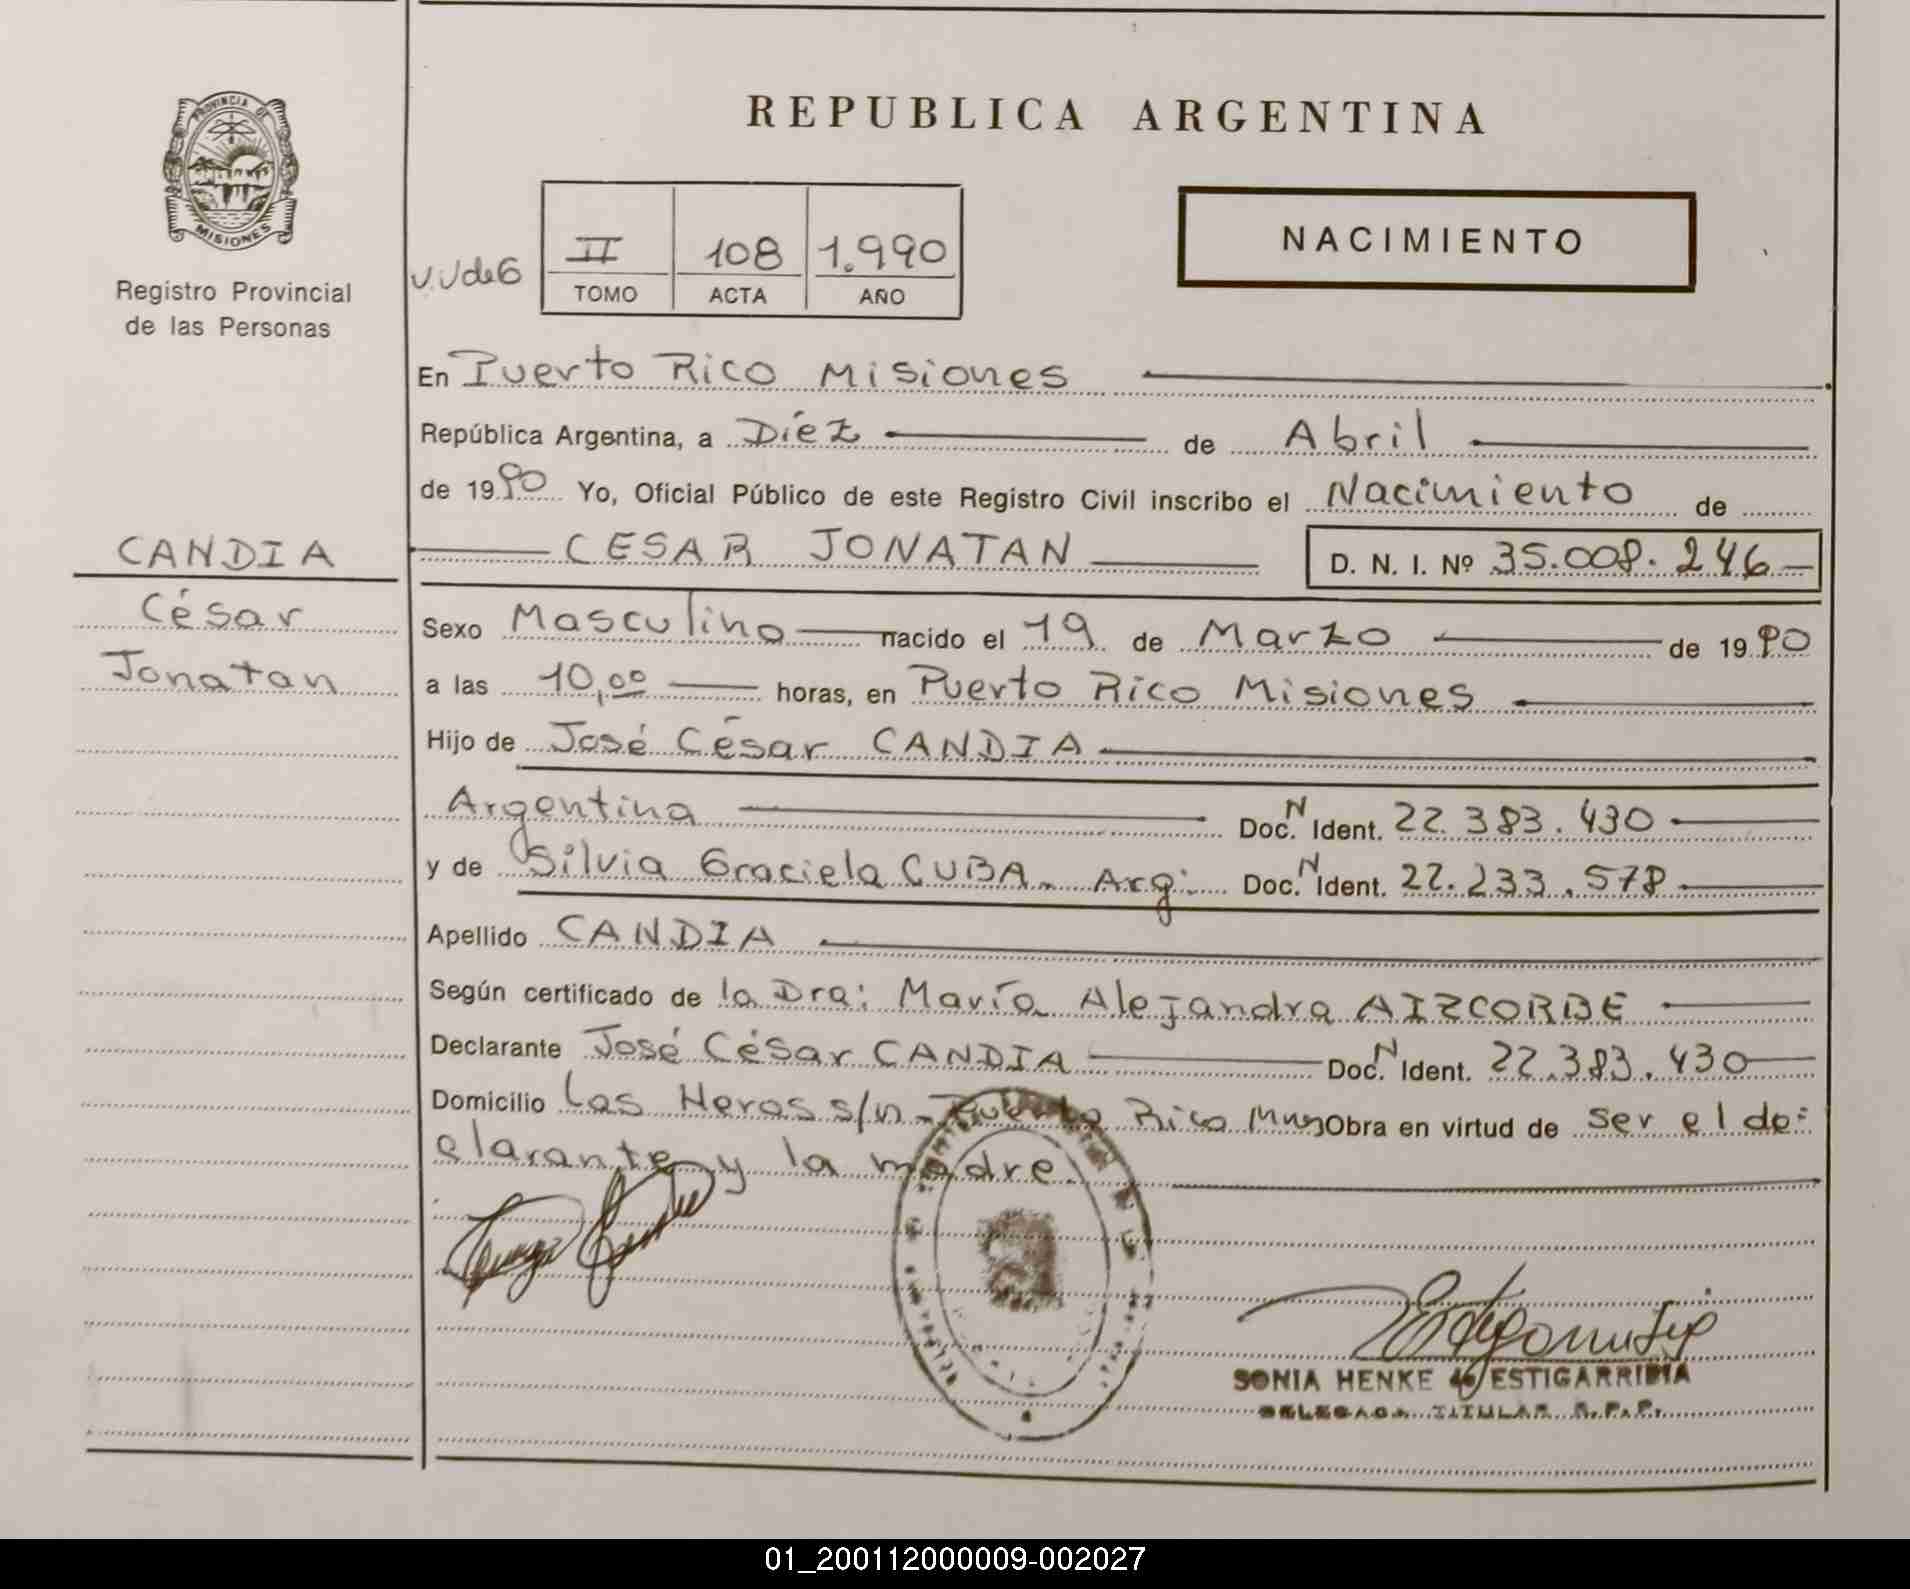 PROVINCIA DE
MISIONES
Registro Provincial
de las Personas
CANDIA
César
Jonatan
REPUBLICA ARGENTINA
II 108 1.990
TOMO ACTA AÑO
NACIMIENTO
En Puerto Rico Misiones
República Argentina, a Diéz de Abril
de 1990 Yo, Oficial Público de este Registro Civil inscribo el Nacimiento de
CESAR JONATAN D. N. I. Nº 35.008.246
Sexo Masculino nacido el 19 de Marzo de 1990
a las 10,00 horas, en Puerto Rico Misiones
Hijo de José César CANDIA
Argentina Doc. N Ident. 22.383.430
y de Silvia Graciela CUBA. Arg: Doc. N Ident. 22.233.578
Apellido CANDIA
Según certificado de la Dra: María Alejandra AIZCORBE
Declarante José César CANDIA Doc. N Ident. 22.383.430
Domicilio Las Heras s/n. Puerto Rico Mnes Obra en virtud de ser el de:
clarante y la madre.
SONIA HENKE de ESTIGARRIBIA
DELEGADA TITULAR R.P.P.
01_200112000009-002027